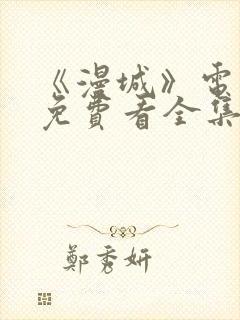 《漫城》電
免費看全集
鄭秀妍